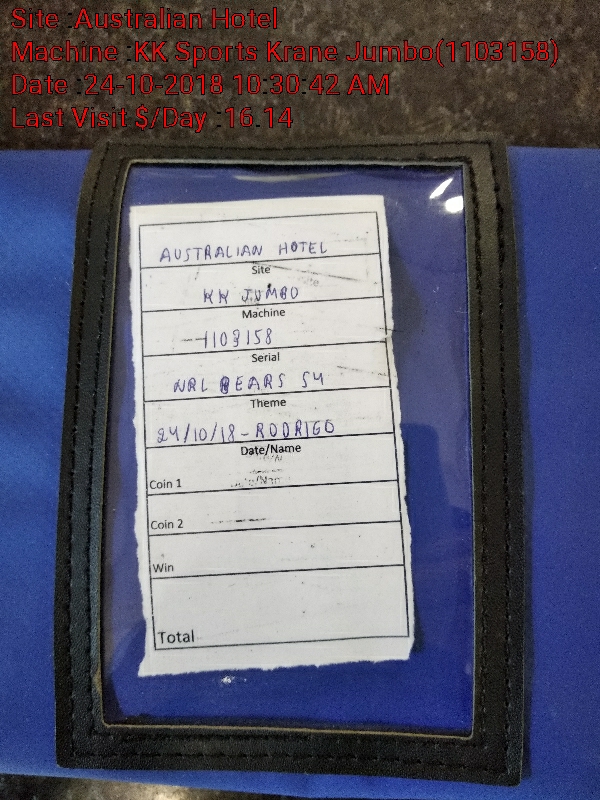 Site :Australian Hotel
Machine :KK Sports Krane Jumbo(1103158)
Date :24-10-2018 10:30:42 AM
Last Visit $/Day :16.14
AUSTRALIAN HOTEL
Site
KK JUMBO
Machine
1103158
Serial
NRL BEARS S4
Theme
24/10/18 - RODRIGO
Date/Name
Coin 1
Coin 2
Win
Total